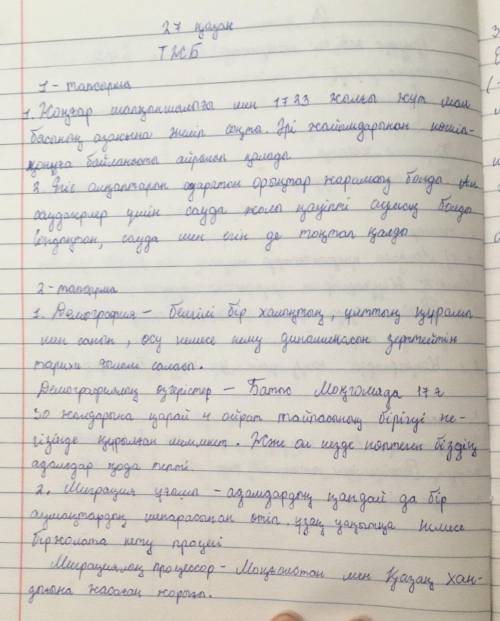 27 қазан
ТЖБ
1 - тапсырма
1. Жоңғар шапқыншылығы мен 1723 жылғы жұт мал
басының азаюына әкеліп соқты. Әрі жайылымдарынан көшіп-
қонуға байланысты айрылып қалады
2. Егіс алқаптарын суаратын арықтар жарамсыз болды. Ал
саудагерлер үшін сауда жолы қауіпті болды
Сондықтан, сауда мен егін де тоқтап қалды
2 - тапсырма
1. Демография - белгілі бір халықтың, ұлттың құрамы
мен санын, өсу немесе кему динамикасын зерттейтін
тарихи ғылым саласы.
Демографиялық өзгерістер - Батыс Моңғолияда 17 ғ
30 жылдарына қарай 4 ойрат тайпасының бірігуі не-
гізінде құрылған мемлекет. Және ол кезде көптеген біздің
адамдар қаза тапті.
2. Миграция ұғымы - адамдардың қандай да бір
аумақтардың шекарасынан өтіп ұзақ уақытқа немесе
біржолата көшу процесі
Миграциялық процессор - Моңғолстан мен Қазақ хан-
дығына жасаған жорығы.